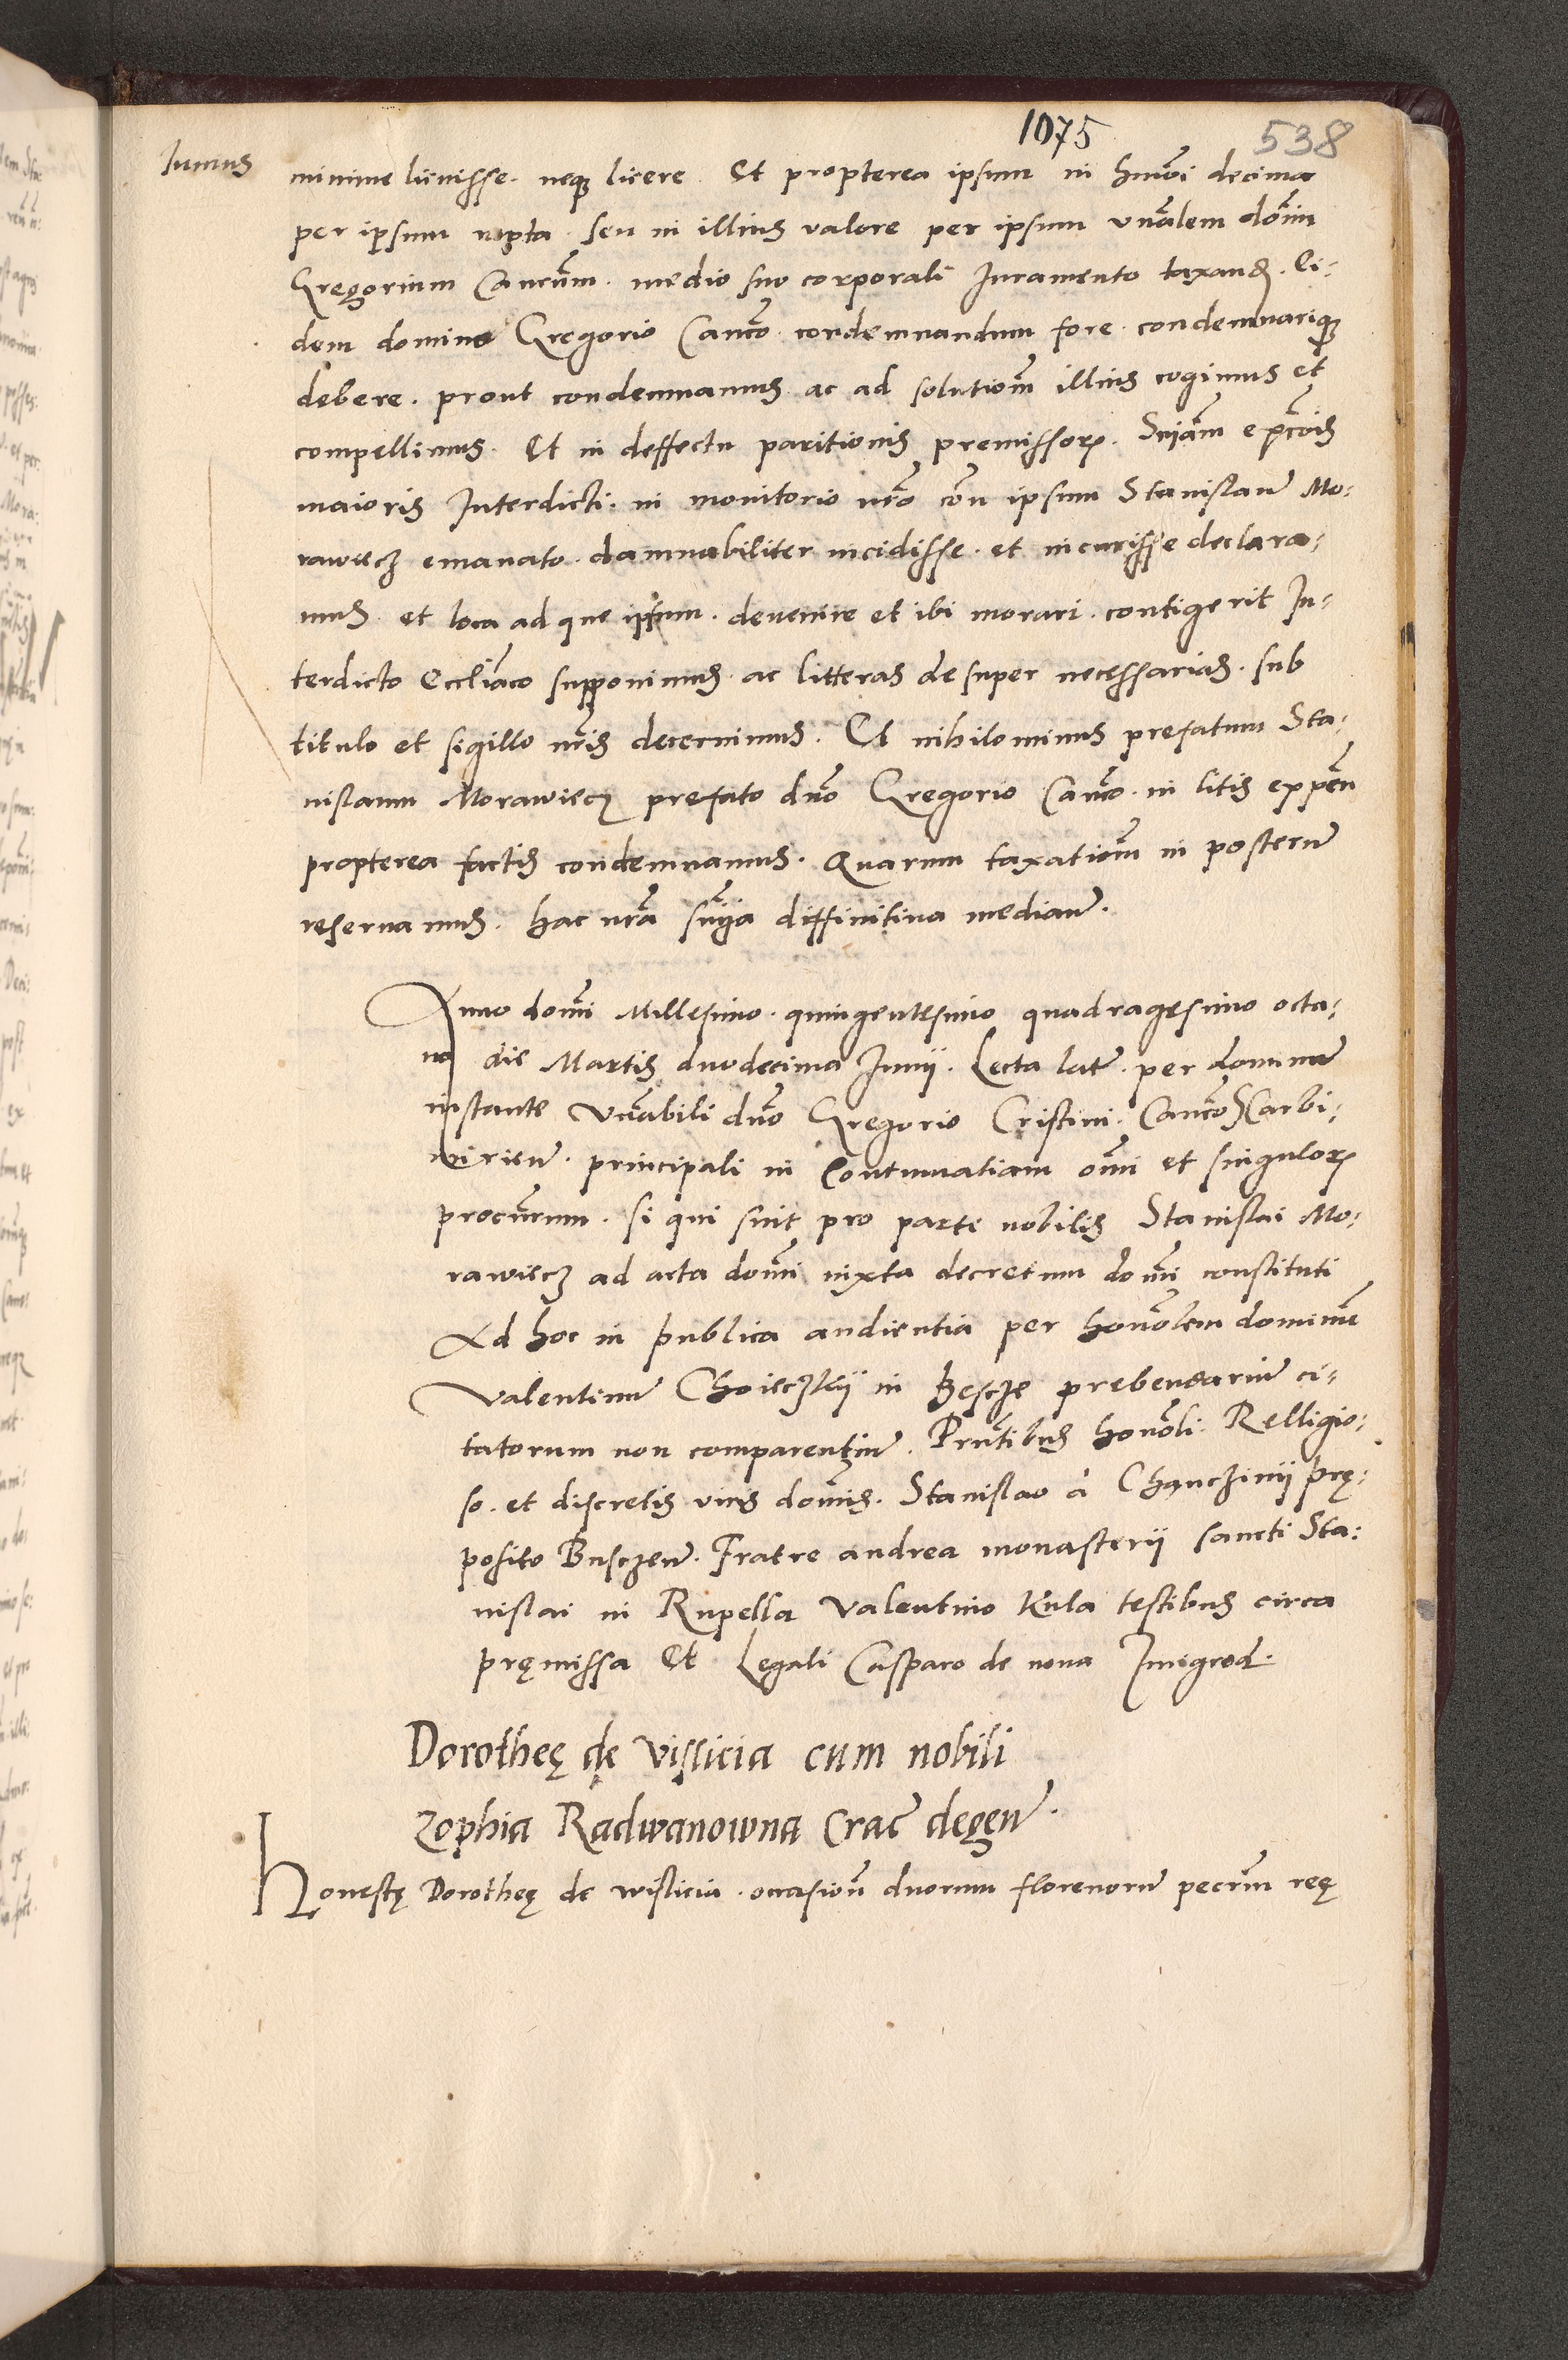 1075
538
Junius
minime licuisse. neq3 licere Et propterea ipsum in hmõi decima
per ipsum rapta seu in illius valore per ipsum vñalem doim
Gregorium Cancum. medio suo corporali Juramento taxand. Ei-
dem domino Gregorio Canco condemnandum fore condemnariq3
debere. prout condemnamus ac ad solutiom illius cogimus et
compellimus. Et in deffectu paritionis premissorꝝ. Sniam excois
maioris Interdicti. in monitorio nro con ipsum Stanislau Mo-
rawiecz emanato. damnabiliter incidisse. et incurisse declara-
mus et loca ad que ipsum. devenire et ibi morari. contigerit In-
terdicto Eccliaco supponimus ac litteras desuper necessarias. sub
titulo et sigillo nris decernimus. Et nihilominus prefatum Sta-
nislaum Morawiecz prefato dno Gregorio Canco. in litis expen
propterea factis condemnamus. Quarum taxatiom in posteru
reservamus. hac nra snia diffinitiva median.
Anno domi Millesimo. quingentesimo quadragesimo octa-
vo die Martis duodecima Junii. Lecta lat. per dominu
instante Vnabili dno Gregorio Cristini. Canco Scarbi-
mirien. principali in Contumatiam omi et singulorꝝ
procurum. si qui sint pro parte nobilis Stanislai Mo-
rawiecz ad acta domi iuxta decretum domi constituti
Ad hoc in publica audientia per honolem dominu
Valentinu Choieczkii in Besche prebendariu ci-
tatorum non comparentiu. Pruntibus honoli. Relligio-
so. et discretis viris domis. Stanislao à Chanczinii prę-
posito Buschen. Fratre andrea monasterii sancti Sta-
nislai in Rupella Valentino Kula testibus circa
pręmissa Et Legali Casparo de nova Jmigrod.
Dorotheę de vislicia cum nobili
Zophia Radwanowna Crac degen.
Honestę Dorotheę de wislicia. occasion duorum florenoru pecrum reę